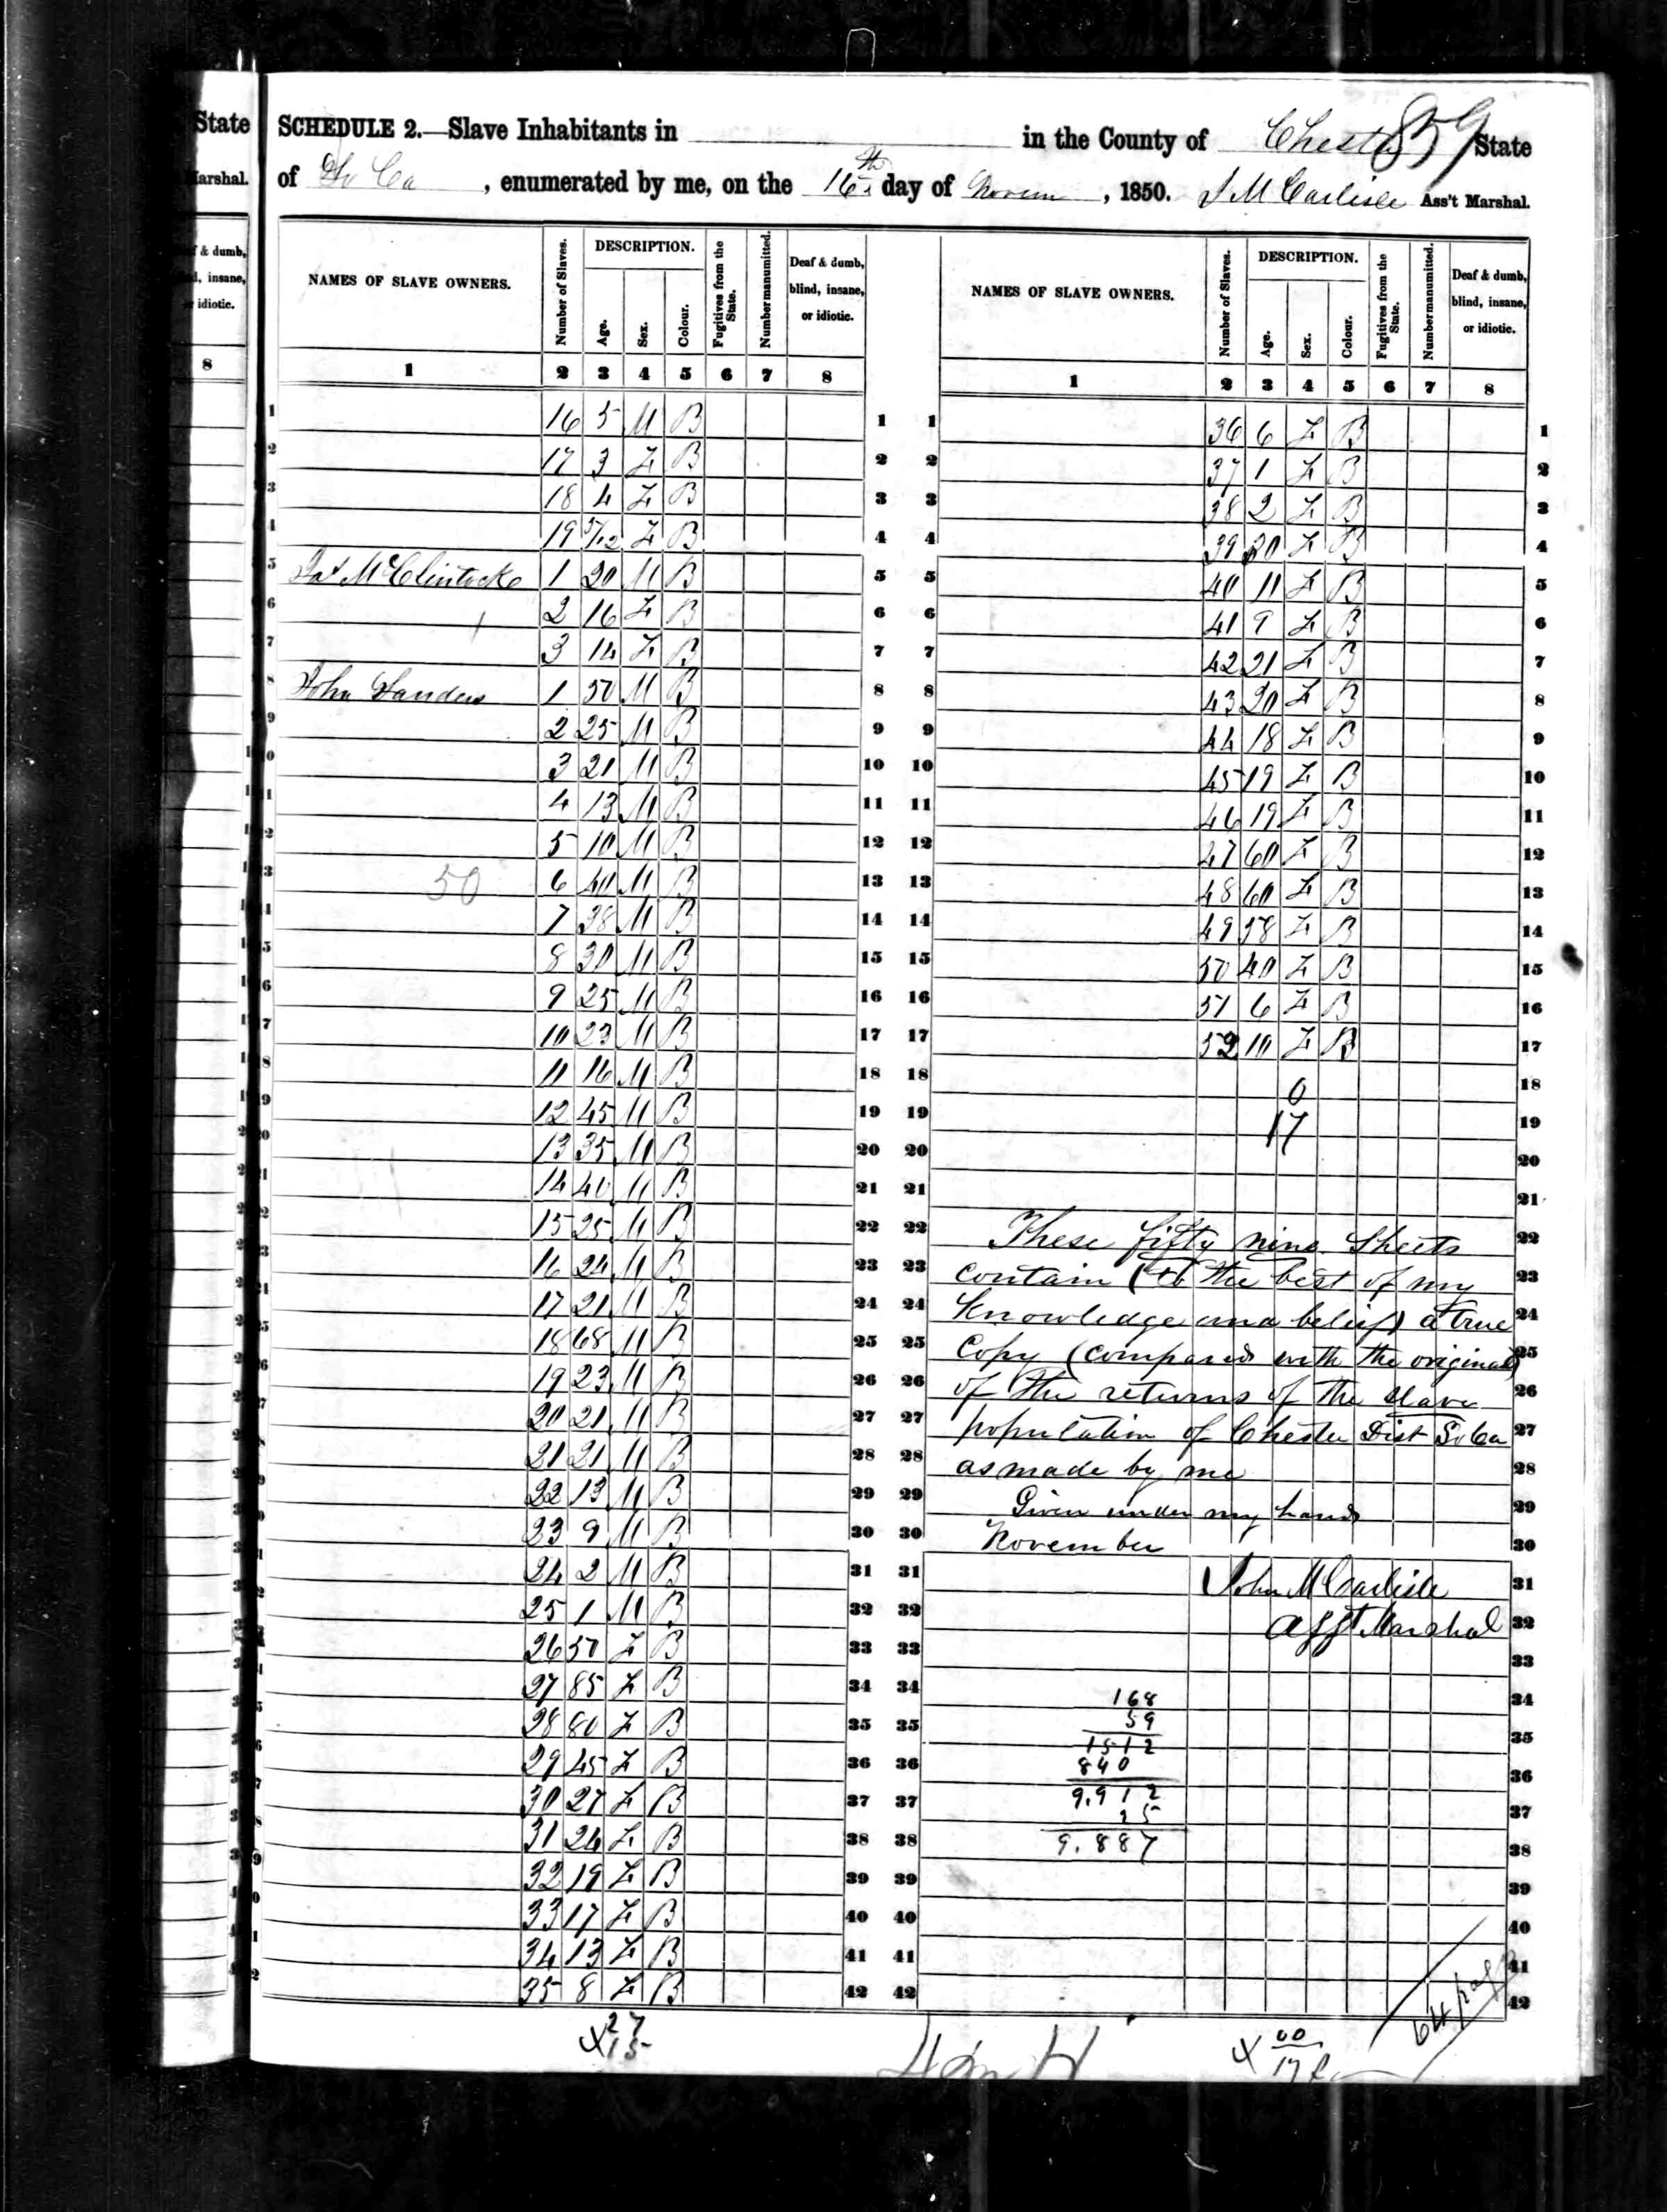 State
Marshal.
f & dumb,
d, insane,
or idiotic.
8
SCHEDULE 2.—Slave Inhabitants in in the County of Chester 59 State
of So Ca, enumerated by me, on the 16th day of Novem, 1850. J M Carlisle Ass't Marshal.
NAMES OF SLAVE OWNERS. Number of Slaves. DESCRIPTION. Age. Sex. Colour. Fugitives from the State. Number manumitted. Deaf & dumb, blind, insane, or idiotic.
1 2 3 4 5 6 7 8
1 16 5 M B 1
2 17 3 F B 2
3 18 4 F B 3
4 19 5/12 F B 4
5 Jas McClintock 1 20 M B 5
6 2 16 F B 6
7 3 14 F B 7
8 John Sanders 1 50 M B 8
9 2 25 M B 9
10 3 21 M B 10
11 4 13 M B 11
12 5 10 M B 12
13 50 6 40 M B 13
14 7 38 M B 14
15 8 30 M B 15
16 9 25 M B 16
17 10 23 M B 17
18 11 16 M B 18
19 12 45 M B 19
20 13 35 M B 20
21 14 40 M B 21
22 15 25 M B 22
23 16 24 M B 23
24 17 21 M B 24
25 18 68 M B 25
26 19 23 M B 26
27 20 21 M B 27
28 21 21 M B 28
29 22 13 M B 29
30 23 9 M B 30
31 24 2 M B 31
32 25 1 M B 32
33 26 50 F B 33
34 27 85 F B 34
35 28 80 F B 35
36 29 45 F B 36
37 30 27 F B 37
38 31 24 F B 38
39 32 19 F B 39
40 33 17 F B 40
41 34 13 F B 41
42 35 8 F B 42
27
15
NAMES OF SLAVE OWNERS. Number of Slaves. DESCRIPTION. Age. Sex. Colour. Fugitives from the State. Number manumitted. Deaf & dumb, blind, insane, or idiotic.
1 2 3 4 5 6 7 8
1 36 6 F B 1
2 37 1 F B 2
3 38 2 F B 3
4 39 20 F B 4
5 40 11 F B 5
6 41 9 F B 6
7 42 21 F B 7
8 43 20 F B 8
9 44 18 F B 9
10 45 19 F B 10
11 46 19 F B 11
12 47 60 F B 12
13 48 60 F B 13
14 49 38 F B 14
15 50 40 F B 15
16 51 6 F B 16
17 52 10 F B 17
18 0 18
19 17 19
20 20
21 21
22 These fifty nine Sheets 22
23 contain (to the best of my 23
24 knowledge and belief) a true 24
25 Copy (compared with the original) 25
26 of the returns of the slave 26
27 population of Chester Dist So Ca 27
28 as made by me 28
29 Given under my hand 29
30 November 30
31 John M Carlisle 31
32 Asst Marshal 32
33 33
34 168 34
35 59 35
1512
36 840 36
37 9,912 37
25
38 9.887 38
39 39
40 40
41 41
42 42
64 pages
00
17